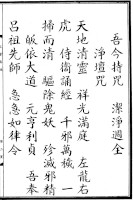 吾今持咒　潔淨週全
淨壇咒
天地清靈　祥光滿庭　左龍右
虎　侍衛誦經　千邪萬穢　一
掃而清　驅除鬼妖　殄滅邪精
皈依大道　元亨利貞　吾奉
呂祖先師　急急如律令